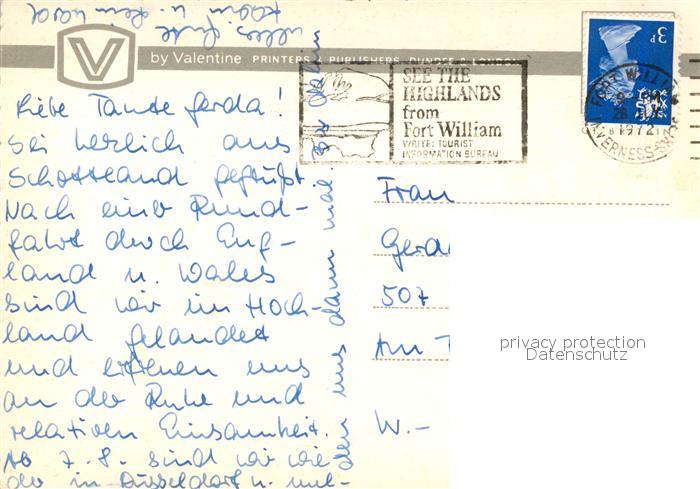 V
by Valentine PRINTERS & PUBLISHERS, DUNDEE & LONDON
SEE THE
HIGHLANDS
from
Fort William
WRITE: TOURIST
INFORMATION BUREAU
3P
FORT WILLIAM
28
1972
INVERNESS-SHIRE
Liebe Tante Gerda!
Sei herzlich aus
Schottland gegrüßt.
Nach einer Rund-
fahrt durch Eng-
land u. Wales
sind wir im Hoch-
land gelandet
und erfreuen uns
an der Ruhe und
relativen Einsamkeit.
Ab 7.8. sind wir wie-
der in Düsseldorf u. mel-
den uns dann mal.
Bis dahin
alles Gute
Frau
Gerd
507
Am T
W.-
privacy protection
Datenschutz